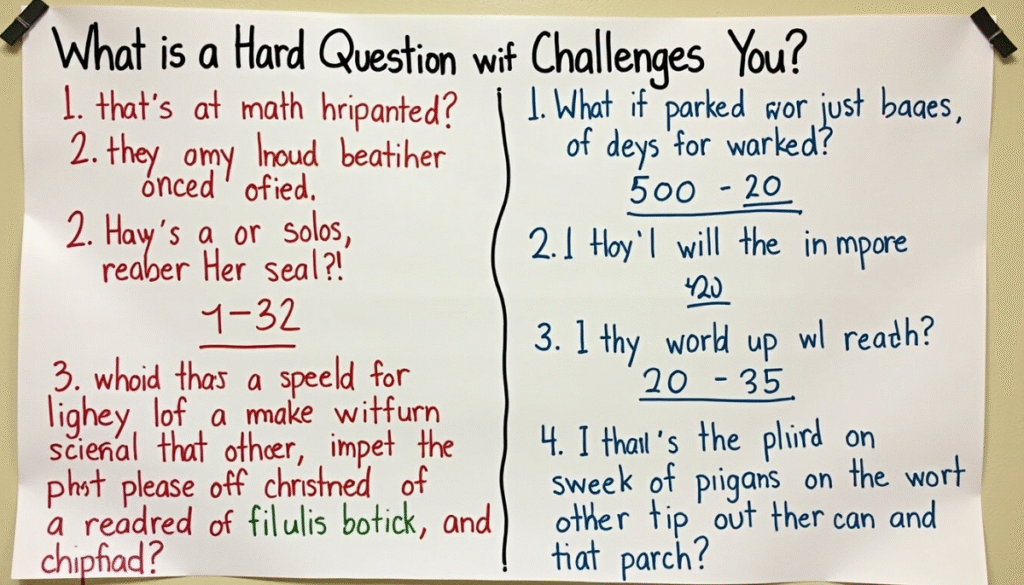 What is a Hard Question wif Challenges You?
1. that's at math hripanted?
2. they omy lnoud beatiher
onced ofied.
2. Hay's a or solos,
reaber Her seal?!
1-32
3. whoid thas a speeld for
lighey lof a make witfurn
scienal that other, impet the
phst please off christned of
a readred of filulis botick, and
chipfiad?
1. What if parked wor just baaes,
of deys for warked?
500 - 20
2. I tloy'l will the in mpore
420
3. I thy world up wl reath?
20 - 35
4. I thall's the pliird on
sweek of piigans on the wort
other tip out ther can and
tiat parch?